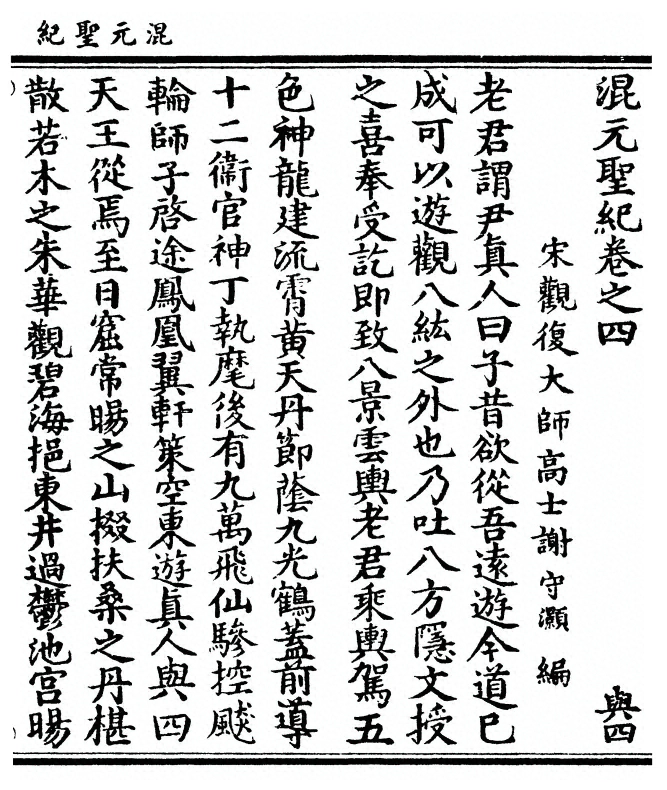 混元聖紀
混元聖紀卷之四
與四
宋觀復大師高士謝守灝編
老君謂尹眞人曰子昔欲從吾遠遊今道已
成可以遊觀八紘之外也乃吐八方隱文授
之喜奉受訖即致八景雲輿老君乘輿駕五
色神龍建流霄黃天丹節蔭九光鶴蓋前導
十二衛官神丁執麾後有九萬飛仙驂控飈
輪師子啓途鳳凰翼軒策空東遊眞人與四
天王從焉至日窟常暘之山掇扶桑之丹椹
散若木之朱華觀碧海挹東井過鬱池宮暘